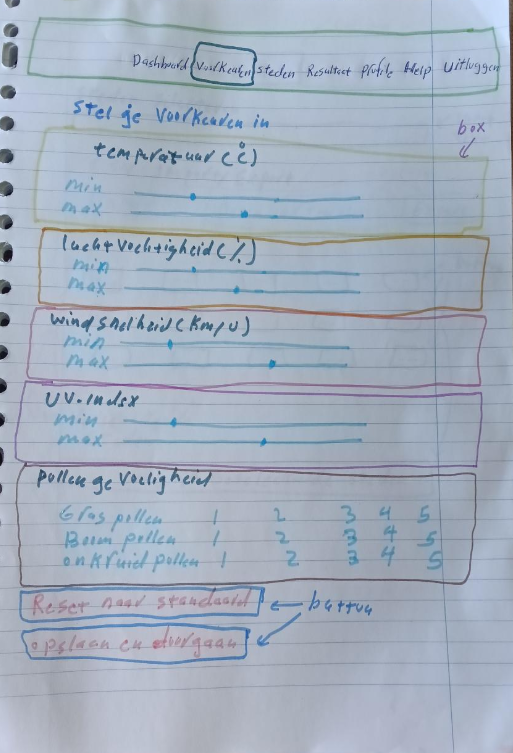 Dashboard Voorkeuren steden Resultaat profile Help Uitloggen
Stel je voorkeuren in
box
temperatuur (°C)
min
max
luchtvochtigheid (%)
min
max
windsnelheid (Km/u)
min
max
UV-Index
min
max
pollengevoeligheid
Gras pollen 1 2 3 4 5
Boom pollen 1 2 3 4 5
onkruid pollen 1 2 3 4 5
Reset naar standaard
button
opslaan en doorgaan